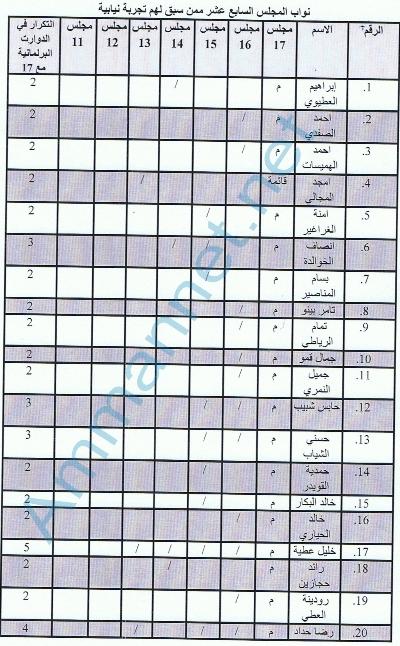 نواب المجلس السابع عشر ممن سبق لهم تجربة نيابية
الرقم الاسم مجلس 17 مجلس 16 مجلس 15 مجلس 14 مجلس 13 مجلس 12 مجلس 11 التكرار في الدوارث البرلمانية مع 17
1. إبراهيم العطيوي م / 2
2. احمد الصفدي م / 2
3. احمد الهميسات م / 2
4. امجد المجالي قائمة / 2
5. امنة الغراغير م / 2
6. انصاف الخوالدة م / / 3
7. بسام المناصير م / 2
8. تامر بينو م / 2
9. تمام الرياطي م / 2
10. جمال قمو م / 2
11. جميل النمري م / 2
12. حابس شبيب م / / 3
13. حسني الشياب م / / 3
14. حمدية القويدر م / 2
15. خالد البكار م / 2
16. خالد الحياري م / 2
17. خليل عطية م / / / / 5
18. رائد حجازين م / 2
19. رودينة العطي م / 2
20. رضا حداد م / / / 4
Ammannet.net